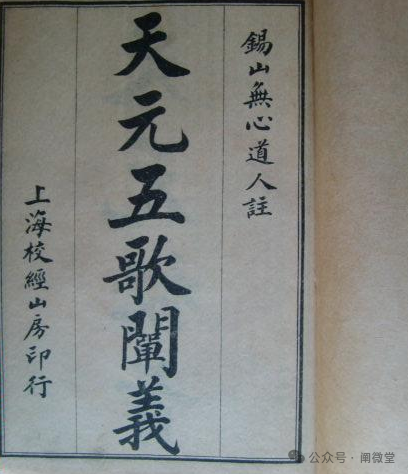 錫山無心道人註
天元五歌闡義
上海校經山房印行
公众号·阐微堂